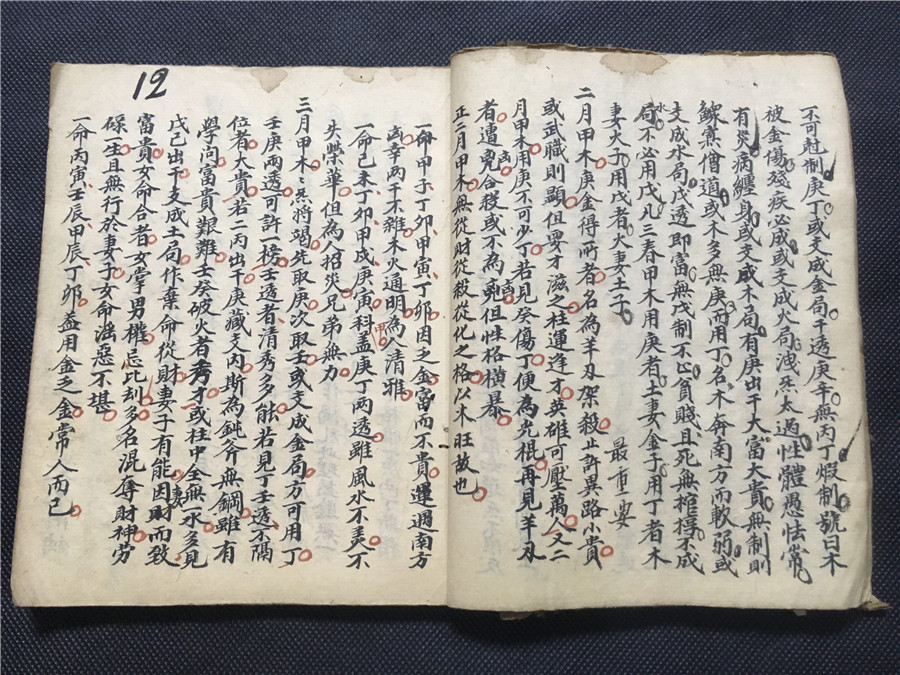 不可尅制庚丁或支成金局干透庚辛無丙丁煆制號曰木
被金傷殘疾必成或支成火局洩炁太過性體愚怯常
有災病纏身或支成木局有庚出干大富大貴無制則
鰥寡僧道或木多無庚而用丁名木奔南方而軟弱或
支成水局戊透即富無戊制不止貧賤且死無棺槨木成
水
局不必用戊凡三春甲木用庚者土妻金子用丁者木
妻火子用戊者火妻土子
最重要
二月甲木庚金得所者名為羊刃架殺止許異路小貴
或武職則顯但要才滋之柱運逢才英雄可壓萬人又二
月甲木用庚不可少丁若見癸傷丁便為光棍再見羊刃
者遭兇合殺或不為兇但性格橫暴
凶
凶
正二月甲木無從財從殺從化之格以木旺故也
12
一命甲子丁卯甲寅丁卯因乏金富而不貴運過南方
尚幸丙干不雜木火通明為人清雅
一命己未丁卯甲戌庚寅科盖庚丁丙透雖風水不美不
甲
失榮華但為人招災兄弟無力
三月甲木木炁將竭先取庚次取壬或支成金局方可用丁
壬庚兩透可許一榜壬透者清秀多能若見丁壬透不隔
位者大貴若一丙出干庚藏支內斯為鈍斧無鋼雖有
學問富貴艱難壬癸破火者秀才或柱中全無一水多見
戊己出干支成土局作棄命從財妻子有能因財而致
妻
富貴女命合者女掌男權忌比刦多名混奪財神勞
碌一生且無行於妻子女命滛惡不堪
一命丙寅壬辰甲辰丁卯盖用金乏金常人而已